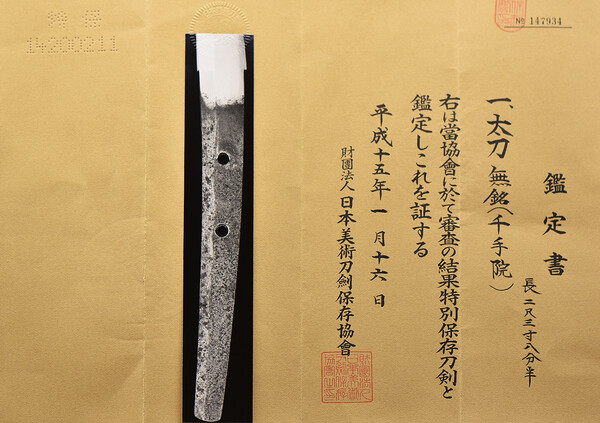 No 147934
鑑定書
一、太刀 無銘(千手院)
長二尺三寸八分半
右は當協會に於て審査の結果特別保存刀剣と
鑑定しこれを証する
平成十五年一月十六日
財團法人日本美術刀劍保存協會
特保
14200211